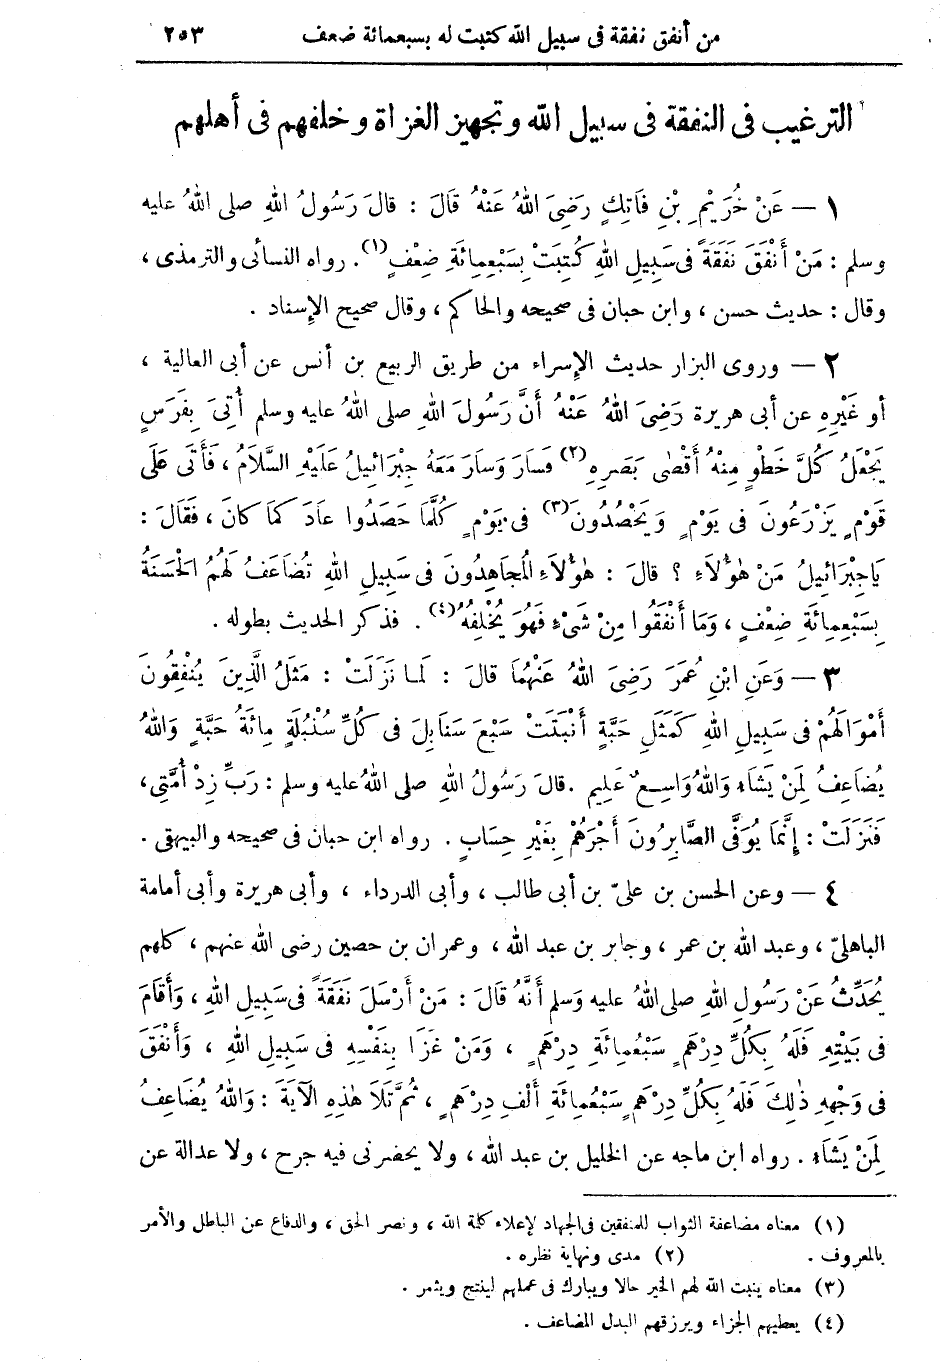 من أنفق نفقة فى سبيل الله كتبت له بسبعمائة ضعف ٢٥٣
الترغيب فى النفقة فى سبيل الله وتجهيز الغزاة وخلفهم فى أهلهم
١ — عَنْ خُرَيْمِ بْنِ فَاتِكٍ رَضِىَ اللهُ عَنْهُ قَالَ : قالَ رَسُولُ اللهِ صلى اللهُ عليه
وسلم : مَنْ أَنْفَقَ نَفَقَةً فى سَبِيلِ اللهِ كُتِبَتْ بِسَبْعِمِائَةِ ضِعْفٍ(١) . رواه النسائى والترمذى ،
وقال : حديث حسن ، وابن حبان فى صحيحه والحاكم ، وقال صحيح الإسناد .
٢ — وروى البزار حديث الإسراء من طريق الربيع بن أنس عن أبى العالية ،
أو غَيْرِهِ عن أبى هريرة رَضِىَ اللهُ عَنْهُ أَنَّ رَسُولَ اللهِ صلى اللهُ عليه وسلم أُتِىَ بِفَرَسٍ
يَجْعَلُ كُلَّ خَطْوٍ مِنْهُ أَقْصٰى بَصَرِهِ(٢) فَسَارَ وَسَارَ مَعَهُ جِبْرَائِيلُ عَلَيْهِ السَّلَامُ ، فَأَتَى عَلَى
قَوْمٍ يَزْرَعُونَ فى يَوْمٍ وَيَحْصُدُونَ(٣) فى يَوْمٍ كُلَّمَا حَصَدُوا عادَ كمَا كانَ ، فَقَالَ :
يَا جِبْرَائِيلُ مَنْ هٰؤُلَاءِ ؟ قالَ : هٰؤُلَاءِ الْمُجَاهِدُونَ فى سَبِيلِ اللهِ تُضَاعَفُ لَهُمُ الْحَسَنَةُ
بِسَبْعِمِائَةِ ضِعْفٍ ، وَمَا أَنْفَقُوا مِنْ شَىْءٍ فَهُوَ يُخْلِفُهُ(٤) . فذكر الحديث بطوله .
٣ — وَعَنِ ابْنِ عُمَرَ رَضِىَ اللهُ عَنْهُمَا قالَ : لَمـا نَزَلَتْ : مَثَلُ الَّذِينَ يُنْفِقُونَ
أَمْوَالَهُمْ فى سَبِيلِ اللهِ كَمَثَلِ حَبَّةٍ أَنْبَتَتْ سَبْعَ سَنَابِلَ فى كُلِّ سُنْبُلَةٍ مِائَةُ حَبَّةٍ وَاللهُ
يُضَاعِفُ لِمَنْ يَشَاءُ وَاللهُ وَاسِعٌ عَلِيم . قالَ رَسُولُ اللهِ صلى اللهُ عليه وسلم : رَبِّ زِدْ أُمَّتِى ،
فَنَزَلَتْ : إِنَّمَا يُوَفَّى الصَّابِرُونَ أَجْرَهُمْ بِغَيْرِ حِسَابٍ . رواه ابن حبان فى صحيحه والبيهقى .
٤ — وعن الحسن بن علىّ بن أبى طالب ، وأبى الدرداء ، وأبى هريرة وأبى أمامة
الباهلىّ ، وعبد الله بن عمر ، وجابر بن عبد الله ، وعمران بن حصين رضى الله عنهم ، كلهم
يُحَدِّثُ عَنْ رَسُولِ اللهِ صلى اللهُ عليه وسلم أَنَّهُ قَالَ : مَنْ أَرْسَلَ نَفَقَةً فى سَبِيلِ اللهِ ، وَأَقَامَ
فى بَيْتِهِ فَلَهُ بِكُلِّ دِرْهَمٍ سَبْعُمِائَةِ دِرْهَمٍ ، وَمَنْ غَزَا بِنَفْسِهِ فى سَبِيلِ اللهِ ، وَأَنْفَقَ
فى وَجْهِهِ ذٰلِكَ فَلَهُ بِكُلِّ دِرْهَمٍ سَبْعُمِائَةِ أَلْفِ دِرْهَمٍ ، ثُمَّ تَلَا هٰذِهِ الْآيَةَ : وَاللهُ يُضَاعِفُ
لِمَنْ يَشَاءُ . رواه ابن ماجه عن الخليل بن عبد الله ، ولا يحضرنى فيه جرح ، ولا عدالة عن
(١) معناه مضاعفة الثواب للمنفقين فى الجهاد لإعلاء كلمة الله ، ونصر الحق ، والدفاع عن الباطل والأمر
بالمعروف . (٢) مدى ونهاية نظره .
(٣) معناه ينبت الله لهم الخير حالا ويبارك فى عملهم لينتج ويثمر .
(٤) يعطيهم الجزاء ويرزقهم البدل المضاعف .